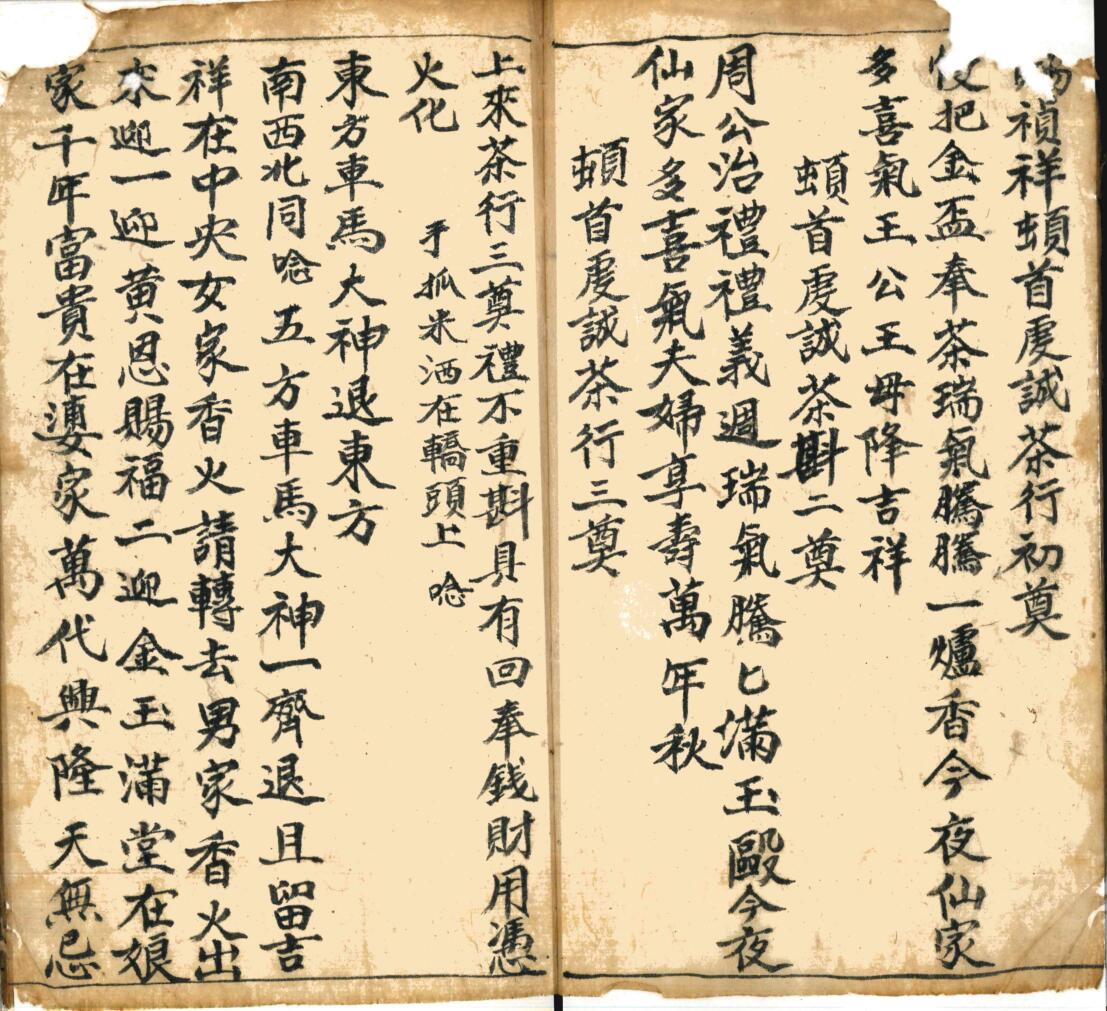 禎祥頓首虔誠茶行初奠
仪把金盃奉茶瑞氣騰騰一爐香今夜仙家
多喜氣王公王母降吉祥
頓首虔誠茶斟二奠
周公治禮禮義週瑞氣騰匕滿玉毆今夜
仙家多喜氣夫婦享壽萬年秋
頓首虔誠茶行三奠
上來茶行三奠禮不重斟具有回奉錢財用憑
火化
手抓米洒在轎頭上唸
東方車馬大神退東方
南西北同唸五方車馬大神一齊退且留吉
祥在中央女家香火請轉去男家香火出
來迎一迎黃恩賜福二迎金玉滿堂在娘
家千年富貴在婆家萬代興隆天無忌